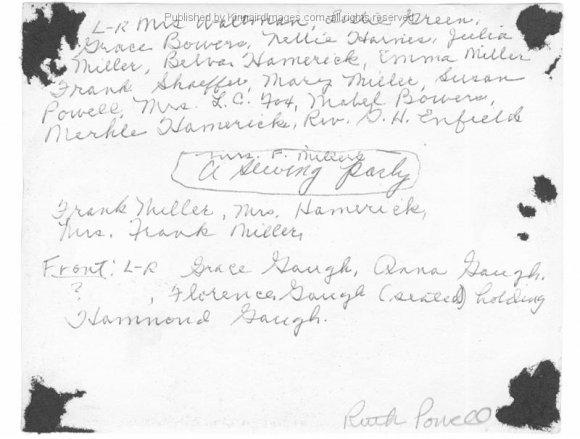 Published by kinnairdimages.com - all rights reserved
L-R Mrs Waltman, Green,
Grace Bowers, Nellie Harnes, Julia
Miller, Belva Hamerick, Emma Miller
Frank Shaeffer, Mary Miller, Susan
Powell, Mrs. L.C. Fox, Mabel Bowers,
Merhle Hamerick, Rev. D. H. Enfield
Mrs. F. Millers
A Sewing party
Frank Miller, Mrs. Hamerick,
Mrs. Frank Miller,
Front: L-R Grace Gaugh, Anna Gaugh.
? , Florence Gaugh (seated) holding
Hammond Gaugh.
Ruth Powell